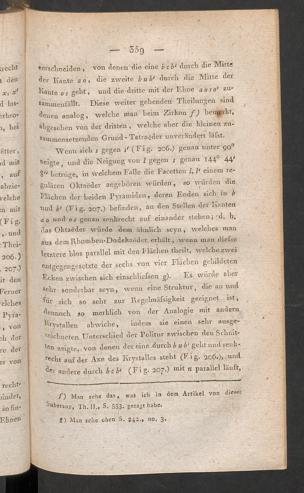 — 359 —
unterscheiden, von denen die eine b z b' durch die Mitte
der Kante a o, die zweite b u b' durch die Mitte der
Kante o s geht, und die dritte mit der Ebne a o s o' zu-
sammenfällt. Diese weiter gehenden Theilungen sind
denen analog, welche man beim Zirkon f) bemerkt,
abgesehen von der dritten, welche aber die kleinen zu-
sammensetzenden Grund-Tetraeder unverändert läfst.
Wenn sich s gegen s' (Fig. 206.) genau unter 90°
neigte, und die Neigung von l gegen s genau 144° 44'
8" betrüge, in welchem Falle die Facetten l, l' einem re-
gulären Oktaëder angehören würden, so würden die
Flächen der beiden Pyramiden, deren Enden sich in b
und b' (Fig. 207.) befinden, an den Stellen der Kanten
genau senkrecht auf einander stehen; d. h.
das Oktaëder würde dem ähnlich seyn, welches man
aus dem Rhomben-Dodekaëder erhält, wenn man dieses
letztere blos parallel mit den Flächen theilt, welche zwei
entgegengesetzte der sechs von vier Flächen gebildeten
Ecken zwischen sich einschliefsen g). Es würde aber
sehr sonderbar seyn, wenn eine Struktur, die an und
für sich so sehr zur Regelmäfsigkeit geeignet ist,
dennoch so merklich von der Analogie mit andern
Krystallen abwiche, indem sie einen sehr ausge-
zeichneten Unterschied der Politur zwischen den Schnit-
ten zeigte, von denen der eine durch b u b' geht und senk-
recht auf der Axe des Krystalles steht (Fig. 206.), und
der andere durch b z b' (Fig. 207.) mit n parallel läuft,
f) Man sehe das, was ich in dem Artikel von dieser
Substanz, Th. II., S. 553. gesagt habe.
g) Man sehe oben S. 242., no. 3.